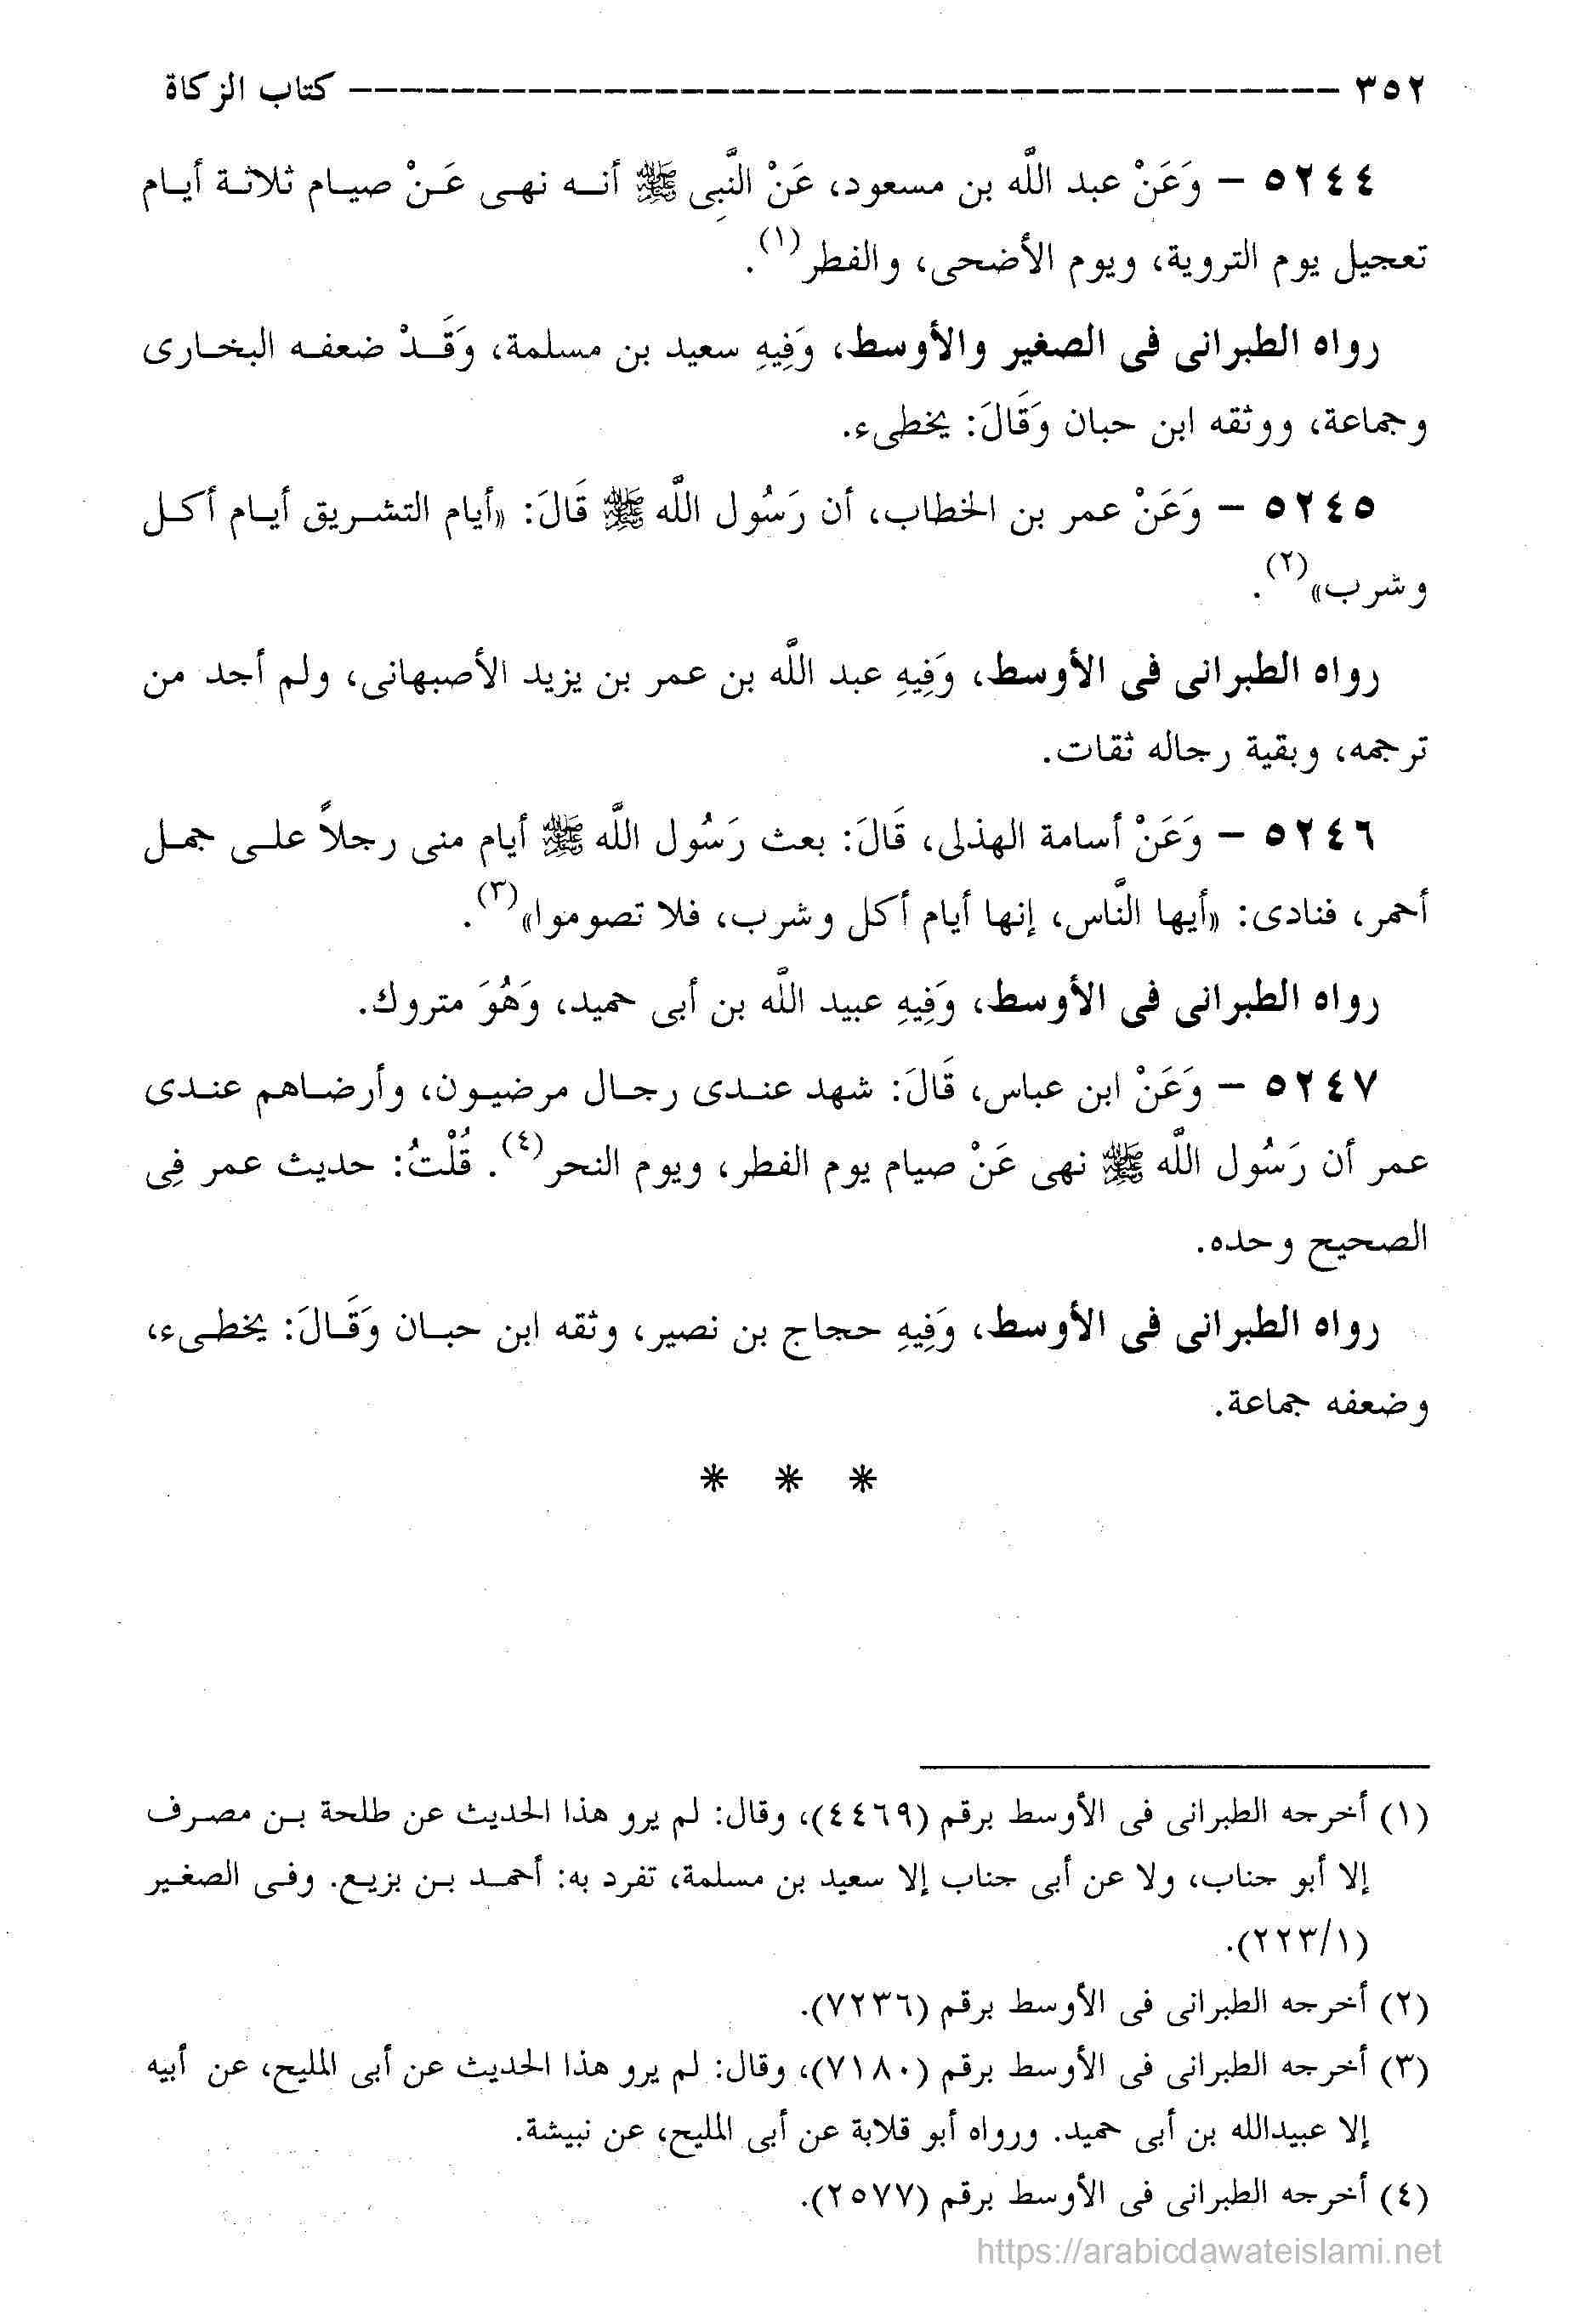 ٣٥٢ ---------------------------------------- كتاب الزكاة
٥٢٤٤ – وَعَنْ عبد اللَّه بن مسعود، عَنْ النَّبِى ﷺ أنه نهى عَنْ صيام ثلاثة أيام
تعجيل يوم التروية، ويوم الأضحى، والفطر(١).
رواه الطبرانى فى الصغير والأوسط، وَفِيهِ سعيد بن مسلمة، وَقَدْ ضعفه البخارى
وجماعة، ووثقه ابن حبان وَقَالَ: يخطىء.
٥٢٤٥ – وَعَنْ عمر بن الخطاب، أن رَسُول اللَّه ﷺ قَالَ: «أيام التشريق أيام أكل
وشرب»(٢).
رواه الطبرانى فى الأوسط، وَفِيهِ عبد اللَّه بن عمر بن يزيد الأصبهانى، ولم أجد من
ترجمه، وبقية رجاله ثقات.
٥٢٤٦ – وَعَنْ أسامة الهذلى، قَالَ: بعث رَسُول اللَّه ﷺ أيام منى رجلاً على جمل
أحمر، فنادى: «أيها النَّاس، إنها أيام أكل وشرب، فلا تصوموا»(٣).
رواه الطبرانى فى الأوسط، وَفِيهِ عبيد اللَّه بن أبى حميد، وَهُوَ متروك.
٥٢٤٧ – وَعَنْ ابن عباس، قَالَ: شهد عندى رجال مرضيون، وأرضاهم عندى
عمر أن رَسُول اللَّه ﷺ نهى عَنْ صيام يوم الفطر، ويوم النحر(٤). قُلْتُ: حديث عمر فِى
الصحيح وحده.
رواه الطبرانى فى الأوسط، وَفِيهِ حجاج بن نصير، وثقه ابن حبان وَقَالَ: يخطىء،
وضعفه جماعة.
* * *
(١) أخرجه الطبرانى فى الأوسط برقم (٤٤٦٩)، وقال: لم يرو هذا الحديث عن طلحة بن مصرف
إلا أبو جناب، ولا عن أبى جناب إلا سعيد بن مسلمة، تفرد به: أحمد بن بزيع. وفى الصغير
(٢٢٣/١).
(٢) أخرجه الطبرانى فى الأوسط برقم (٧٢٣٦).
(٣) أخرجه الطبرانى فى الأوسط برقم (٧١٨٠)، وقال: لم يرو هذا الحديث عن أبى المليح، عن أبيه
إلا عبيدالله بن أبى حميد. ورواه أبو قلابة عن أبى المليح، عن نبيشة.
(٤) أخرجه الطبرانى فى الأوسط برقم (٢٥٧٧).
https://arabicdawateislami.net